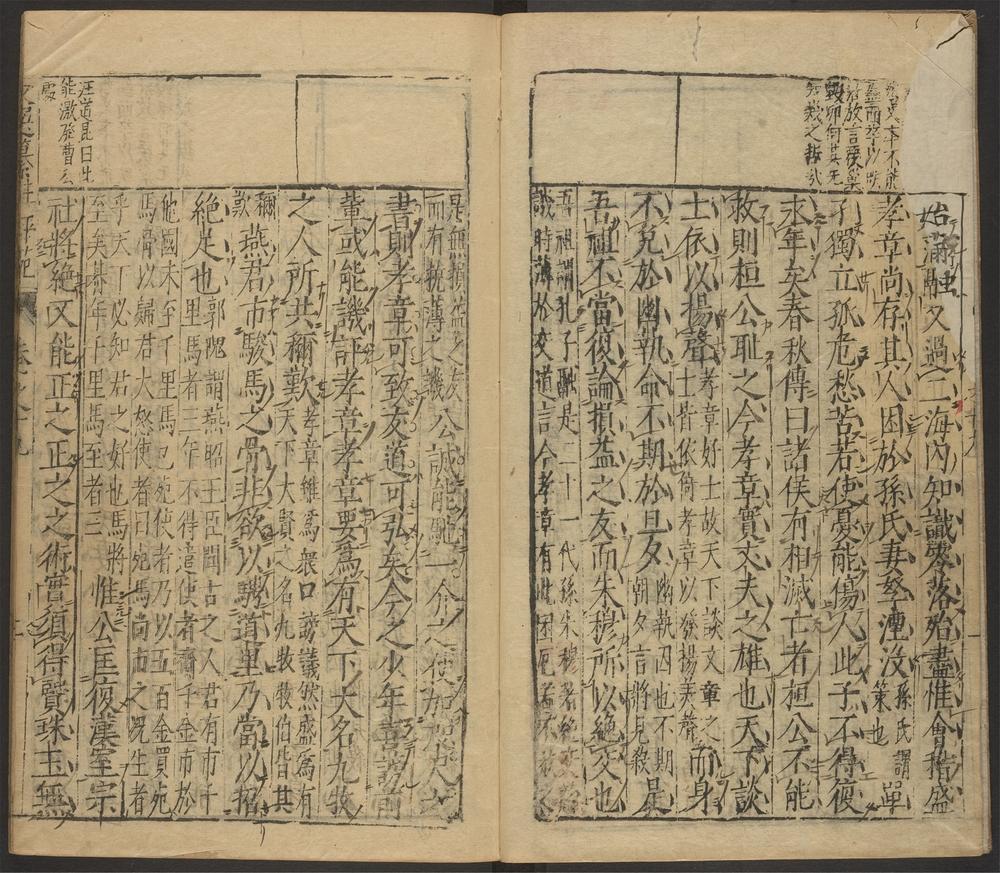 始滿融又過二海内知識零落殆盡惟會稽盛
孝章尚存其人困於孫氏妻孥湮沒孫氏謂策也單
孑獨立孤危愁苦若使憂能傷人此子不得復
永年矣春秋傳曰諸侯有相滅亡者桓公不能
救則桓公耻之今孝章實丈夫之雄也天下談
士依以揚聲孝章好士故天下談文章之士皆依倚孝章以發揚美聲而身
不免於幽執命不期於旦夕幽執囚也不期朝夕言將見殺是
吾祖不當復論損益之友而朱穆所以絶交也
吾祖謂孔子融是二十一代孫朱穆著絶交論
譏時薄於交道言今孝章有此困厄若不救之
是無損益之友
而有執薄之譏公誠能馳一介之使加咫尺之
書則孝章可致友道可弘矣今之少年喜謗前
輩或能譏評孝章孝章要爲有天下大名九牧
之人所共稱歎孝章雖爲衆口謗議然盛爲有天下大賢之名九牧牧伯皆其
稱歎燕君市駿馬之骨非欲以騁道里乃當以招
絶足也郭隗謂燕昭王臣聞古之人君有市千里馬者三年不得遣使者齎千金市於
他國未至千里馬已死使者乃以五百金買死
馬骨以歸君大怒使者曰死馬尚市之況生者
乎天下必知君之好也馬將
至矣朞年千里馬至者三惟公匡復漢室宗
社將絶又能正之正之之術實須得賢珠玉無
汪道昆曰此
能激發曹公
處